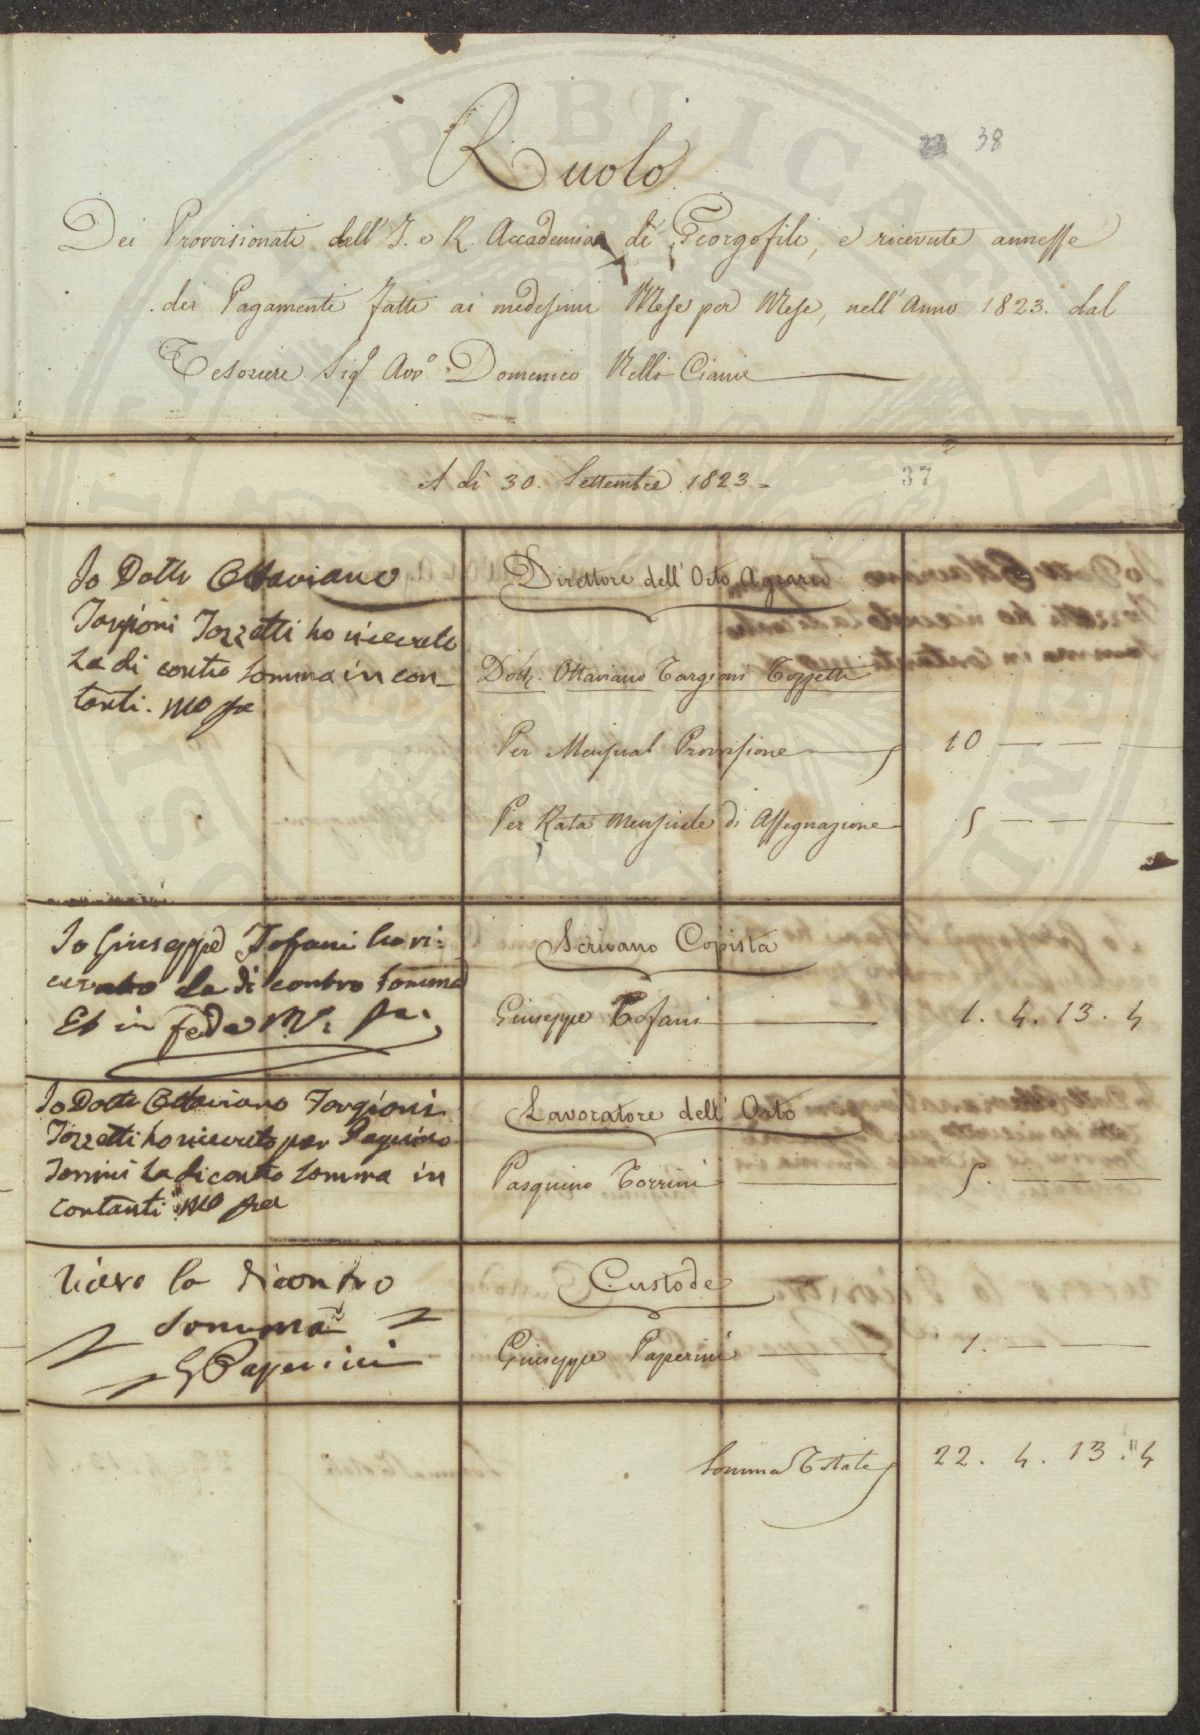 38
Ruolo
Dei Provvisionati dell' I. e R. Accademia de' Georgofili, e ricevute annesse
dei Pagamenti fatti ai medesimi Mese per Mese, nell' Anno 1823. dal
Tesoriere Sig.r Avv.o Domenico Nelli Ciani
37
A di 30. Settembre 1823.
Io Dott.r Ottaviano
Targioni Tozzetti ho ricevuto
la di contro somma in con_
tanti. mo pa
Direttore dell' Orto Agrario
Dott.r Ottaviano Targioni Tozzetti
Per Mensual Provvisione 10 — — —
Per Rata Mensuale di Assegnazione 5 — — —
Io Giuseppe Tofani ho ri:
cevuto la di contro somma
Et in fede M.o pa:
Scrivano Copista
Giuseppe Tofani 1. 4. 13. 4
Io Dott.r Ottaviano Targioni
Tozzetti ho ricevuto per Pasquino
Torrini la di contro somma in
contanti mo pa
Lavoratore dell' Orto
Pasquino Torrini 5. — — —
Ricevo la di contro
somma
G Paperini
Custode
Giuseppe Paperini 1. — — —
Somma Totale 22. 4. 13. 4